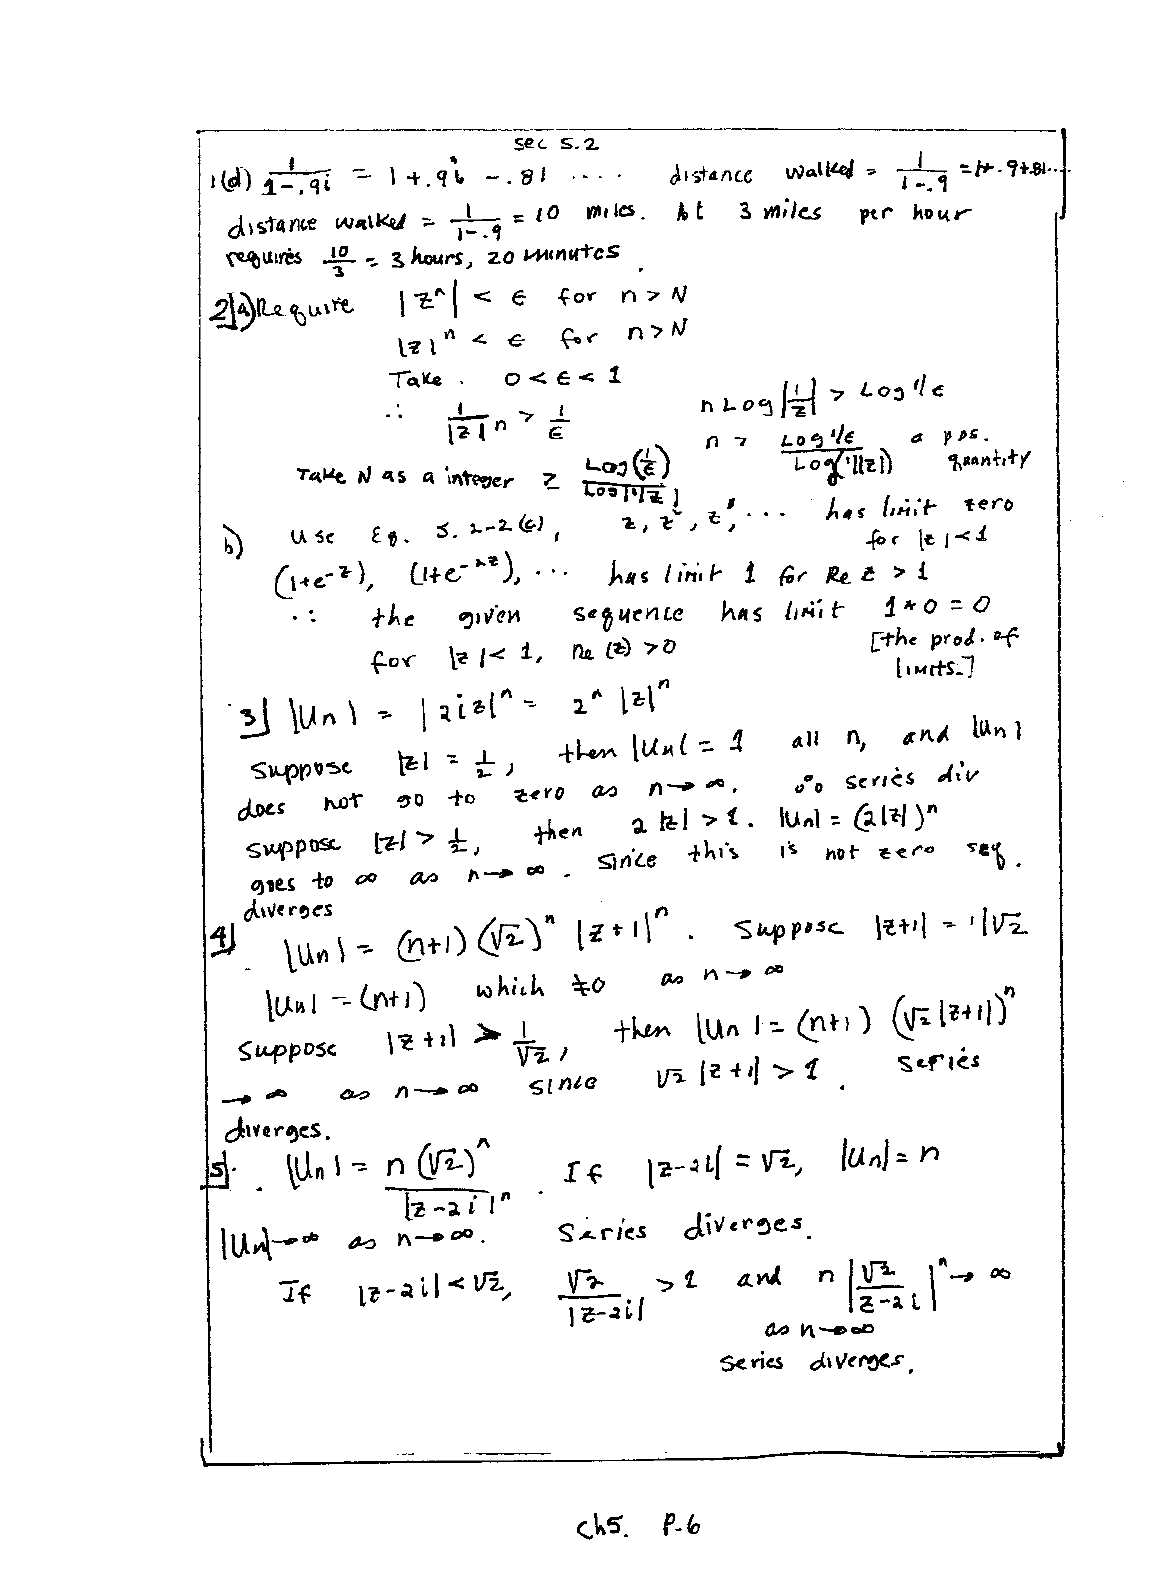 sec 5.2
1(d) 1/(1-.9i) = 1+.9i -.81 .... distance walked = 1/(1-.9) = 1+.9+.81...
distance walked = 1/(1-.9) = 10 miles. At 3 miles per hour
requires 10/3 = 3 hours, 20 minutes.
2](a) Require |z^n| < ε for n > N
|z|^n < ε for n > N
Take . 0 < ε < 1
∴ 1/|z|^n > 1/ε n Log|1/z| > Log 1/ε
n > Log 1/ε / Log(1/|z|) a pos. quantity
Take N as a integer ≥ Log(1/ε) / Log|1/z|
b) Use Eq. 5.2-2(c), z, z², z³, ... has limit zero
for |z|<1
(1+e^-z), (1+e^-2z), ... has limit 1 for Re z > 1
∴ the given sequence has limit 1*0=0
for |z|<1, Re(z)>0 [the prod. of
limits.]
3] |Un| = |2iz|^n = 2^n |z|^n
Suppose |z| = 1/2, then |Un| = 1 all n, and |Un|
does not go to zero as n→∞. ∴ series div
suppose |z| > 1/2, then 2|z| > 1. |Un| = (2|z|)^n
goes to ∞ as n→∞. Since this is not zero seq.
diverges
4] |Un| = (n+1)(√2)^n |z+1|^n. Suppose |z+1| = 1/√2
|Un| = (n+1) which ≠0 as n→∞
Suppose |z+1| > 1/√2, then |Un| = (n+1) (√2|z+1|)^n
→∞ as n→∞ since √2 |z+1| > 1. Series
diverges.
5]. |Un| = n(√2)^n / |z-2i|^n . If |z-2i| = √2, |Un| = n
|Un|→∞ as n→∞. Series diverges.
If |z-2i| < √2, √2/|z-2i| > 1 and n|√2/(z-2i)|^n → ∞
as n→∞
Series diverges.
Ch5. P-6